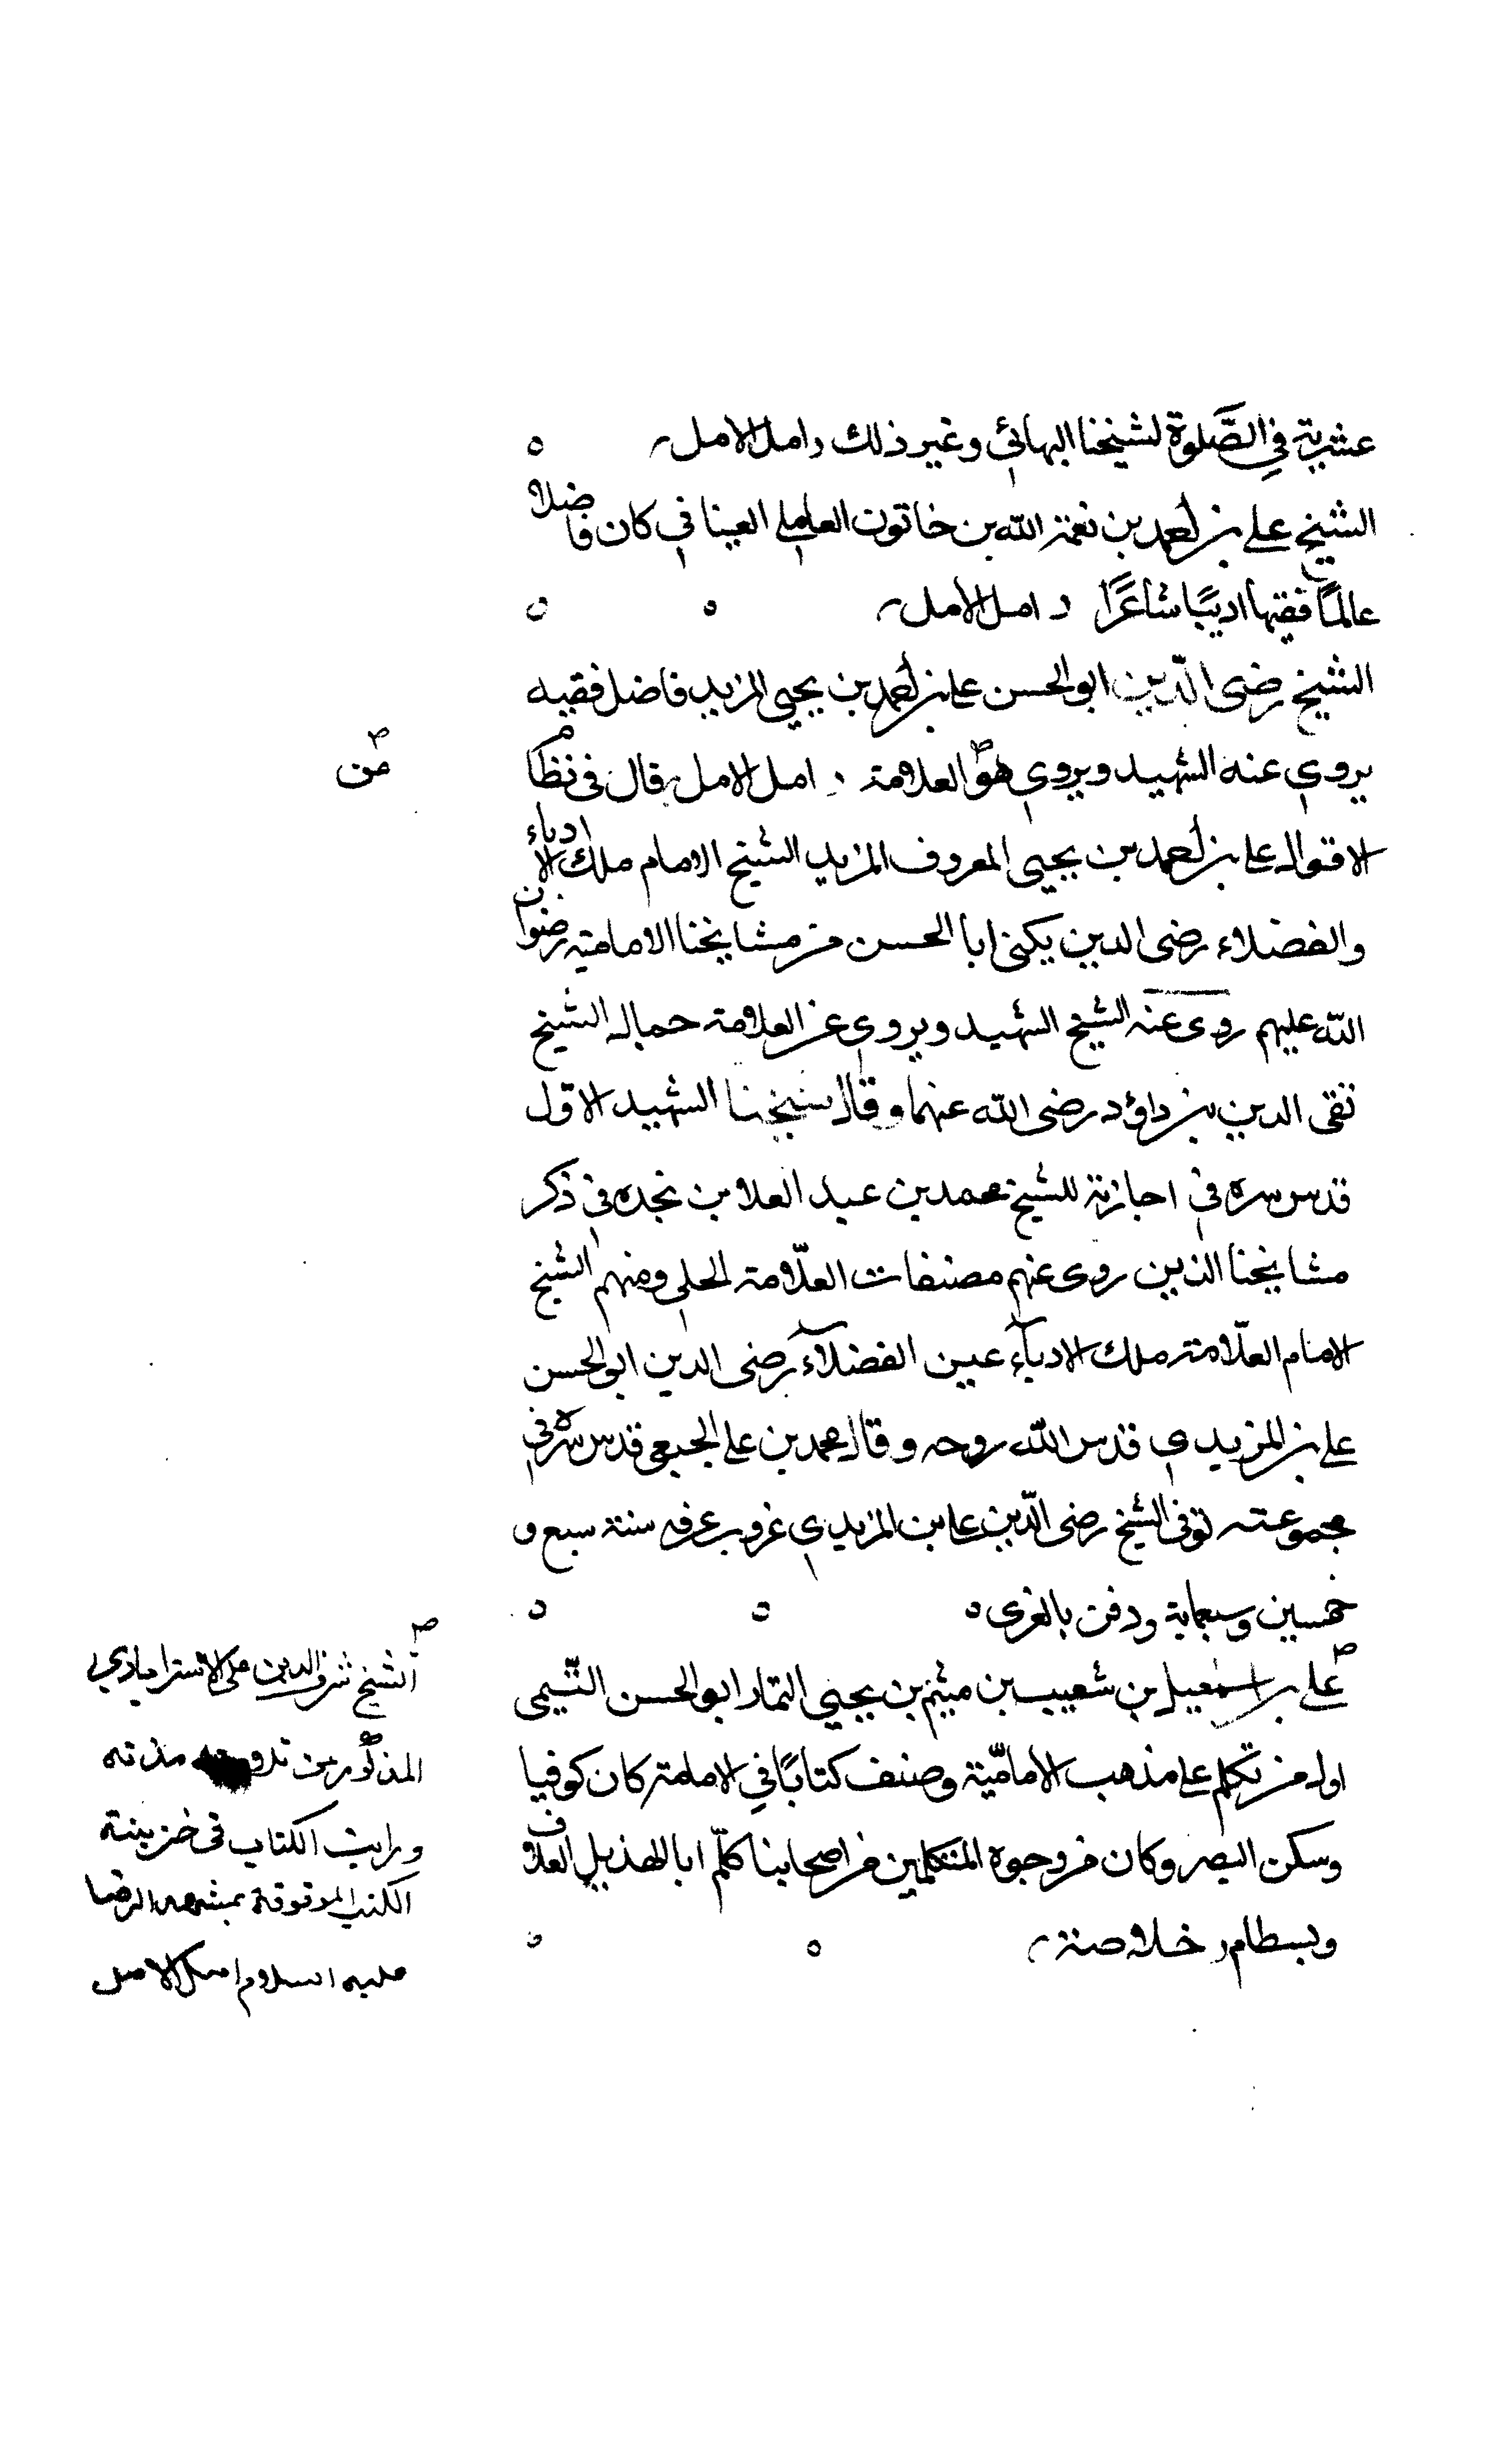 عشرية في الصَّلوة لشيخنا البهائي وغير ذلك امل الامل
الشيخ علي بن احمد بن نعمة الله بن خاتون العاملي العيناثي كان فاضلا
عالمًا فقيها اديبًا شاعرًا امل الامل
الشيخ رضى الدّين ابو الحسن علي بن احمد بن يحيى المزيدي فاضل فقيه
يروي عنه الشهيد ويروي هو العلامة امل الامل قال في نظام
عن
الاقوال علي بن احمد بن يحيى المعروف المزيدي الشيخ الامام ملك الادباء
والفضلاء رضى الدين يكنى ابا الحسن من مشايخنا الامامية رضوان
الله عليهم روى عنه الشيخ الشهيد ويروي عن العلامة جمال الشيخ
تقى الدين بن داؤد رضى الله عنهما وقال شيخنا الشهيد الاول
قدس سره في اجازته للشيخ محمد بن عبد العلا بن نجده في ذكر
مشايخنا الذين روى عنهم مصنفات العلّامة الحلي ومنهم الشيخ
الامام العلّامة ملك الادبآء عين الفضلآء رضى الدين ابو الحسن
علي بن المزيدي قدس الله روحه و قال محمد بن علي الجبعي قدس سره في
مجموعته توفى الشيخ رضى الدّين علي بن المزيدي غروب عرفه سنة سبع و
خمسين وسبعماية ودفن بالغرى
علي بن اسمعيل بن شعيب بن ميثم بن يحيى التمار ابو الحسن التّيمي
اول من تكلم على مذهب الاماميّة وصنف كتابًا في الامامة كان كوفيا
وسكن البصره وكان من وجوه المتكلمين من اصحابنا كلّم ابا الهذيل العلاف
والنظام خلاصة
الشيخ شرف الدين علي الاسترابادي
المذكور من تلامذته
ورايت الكتاب في خزينة
الكتب الموقوفة بمشهد الرضا
عليه السلام امل الامل